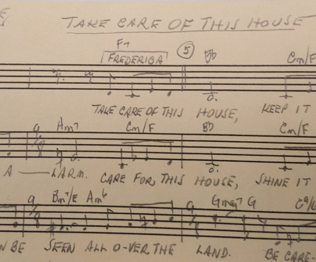 TAKE CARE OF THIS HOUSE
F7
FREDERICA 5 Bb Cm/F
TAKE CARE OF THIS HOUSE, KEEP IT
G Am7 Cm/F Bb Cm/F
A — LARM. CARE FOR THIS HOUSE, SHINE IT
G Bm7/E Am6 G Gmaj7 G
N BE SEEN ALL O-VER THE LAND. BE CARE-